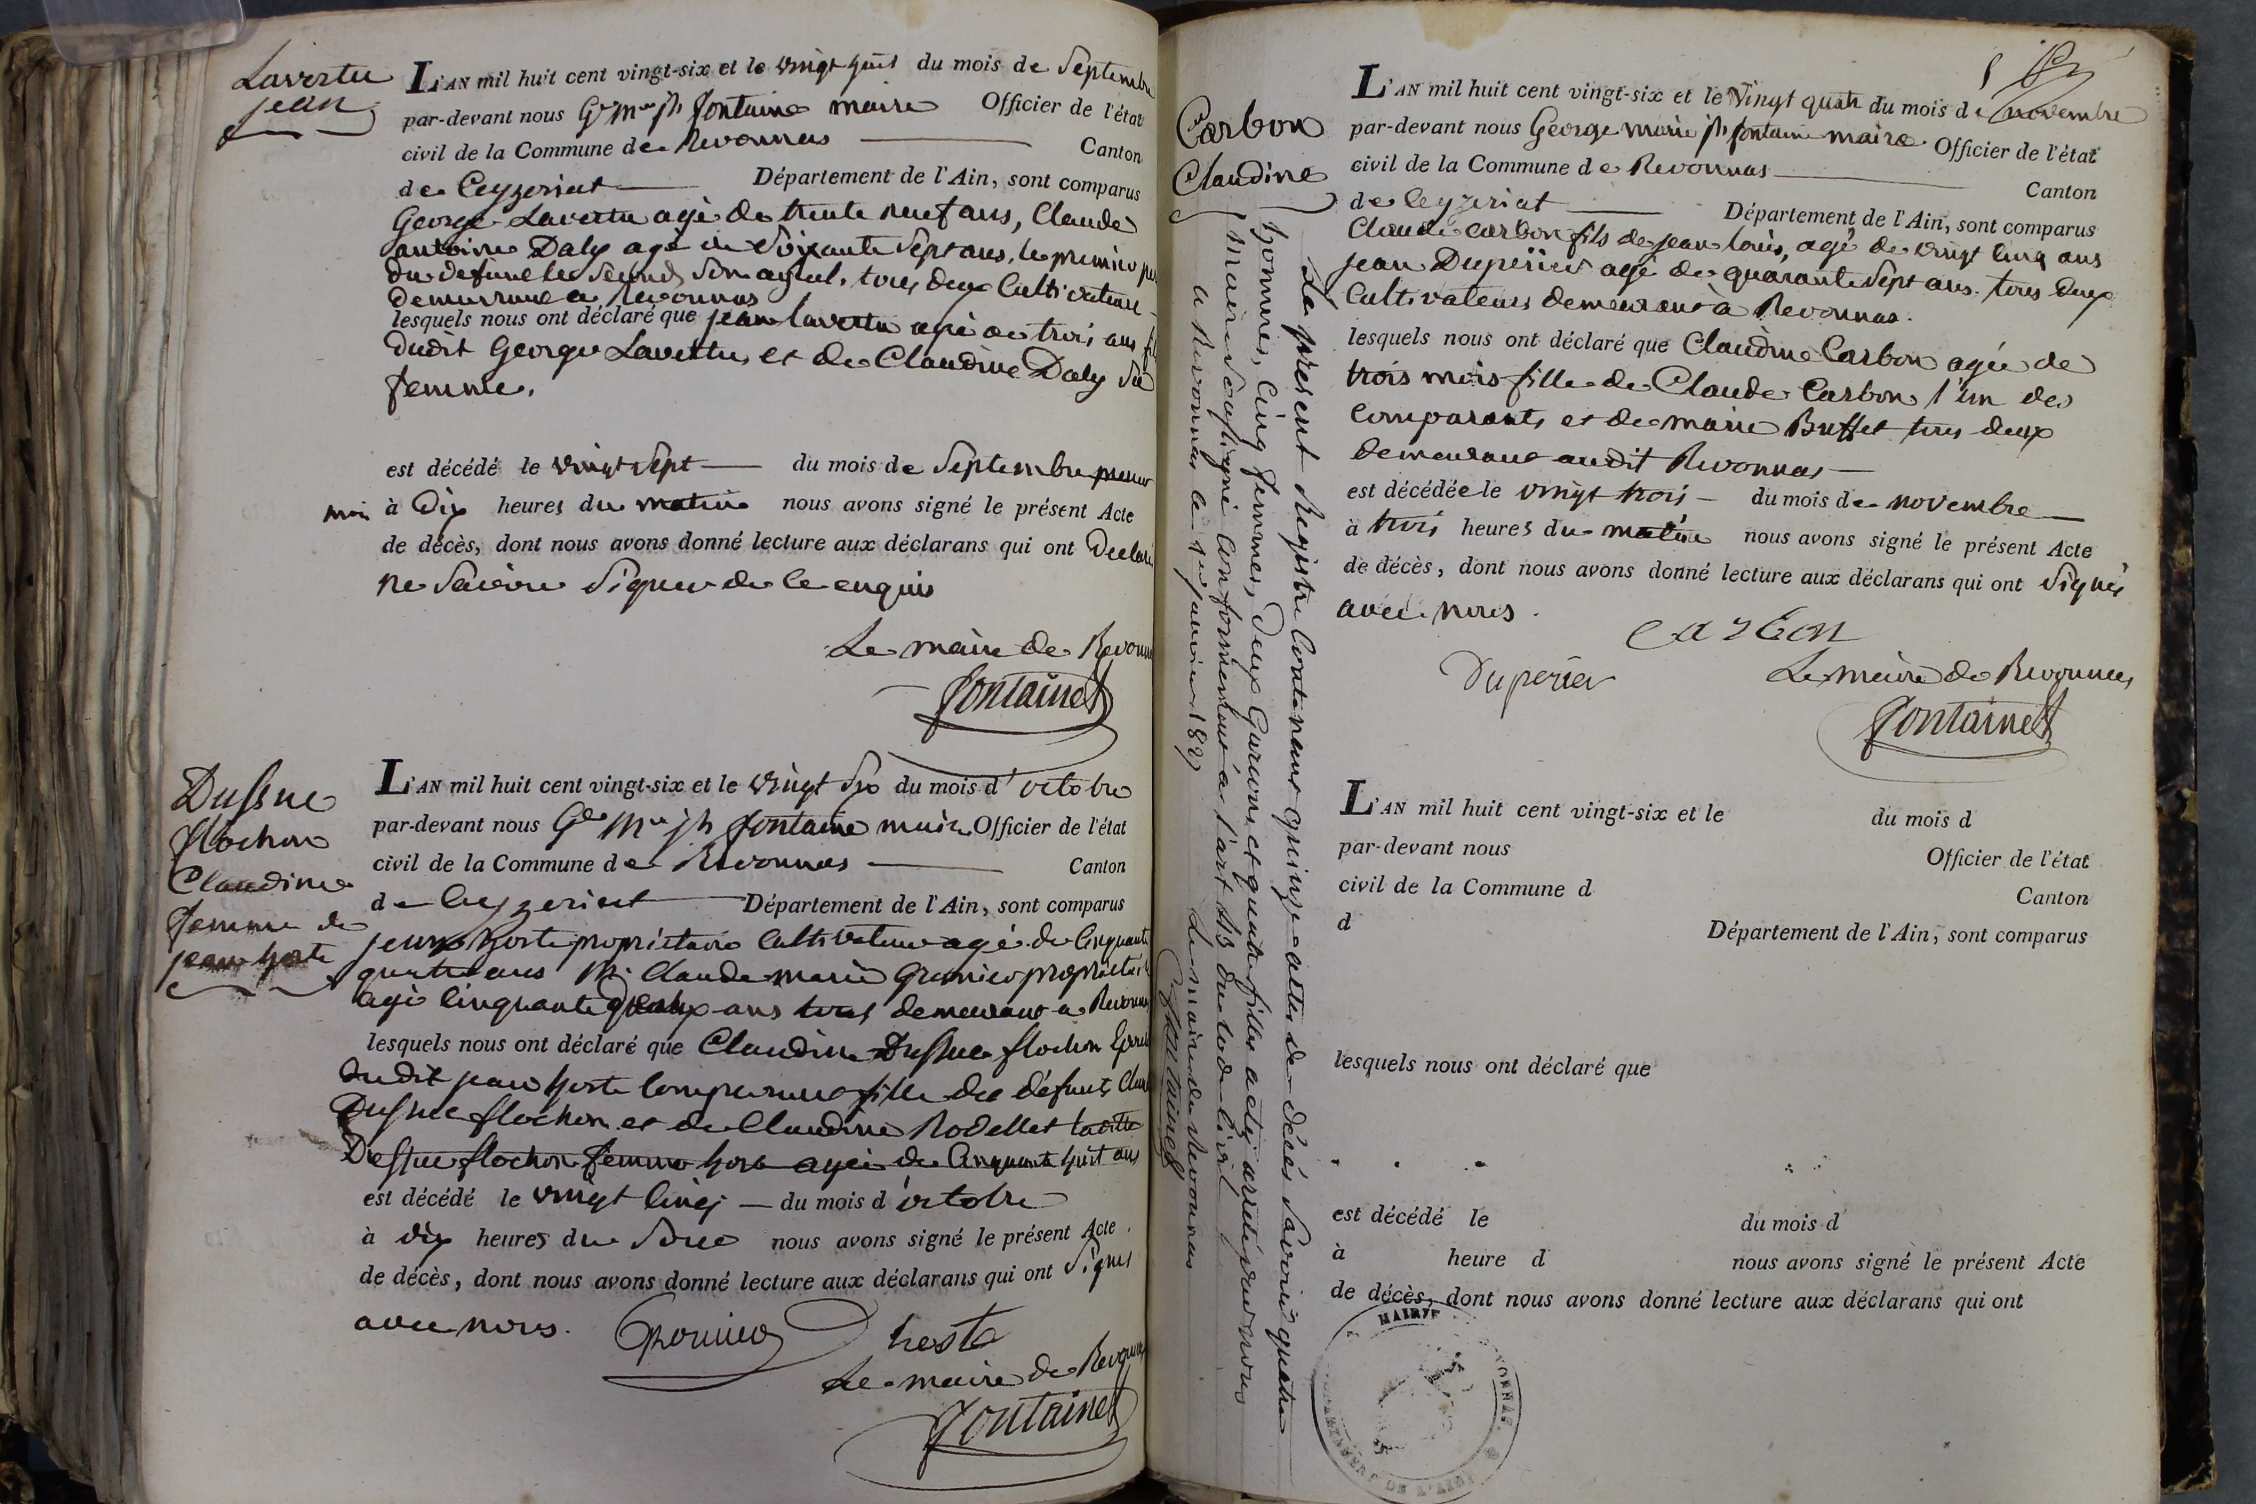 Lavertu
jean
L'AN mil huit cent vingt-six et le vingt huit du mois de Septembre
par-devant nous Ge Mie jh fontaine maire Officier de l'état
civil de la Commune de Revonnas Canton
de Ceyzeriat Département de l'Ain, sont comparus
George Lavertu agé de trente neuf ans, Claude
antoine Daly agé de Soixante Sept ans, le premier
du defunt le Second Son ayeul, tous deux Cultivateurs
demeurant a Revonnas
lesquels nous ont déclaré que jean lavertu agé de trois ans
dudit George Lavertu et de Claudine Daly Sa
femme.
est décédé le vingt Sept du mois de Septembre
à Dix heures du matin nous avons signé le présent Acte
de décès, dont nous avons donné lecture aux déclarans qui ont Declaré
ne Savoir Signer de ce enquis
Le maire de Revonnas
fontaine
Dussue
flochon
Claudine
femme de
jean hoste
L'AN mil huit cent vingt-six et le vingt Six du mois d'octobre
par-devant nous Ge Mie jh fontaine maire Officier de l'état
civil de la Commune de Revonnas Canton
de Ceyzeriat Département de l'Ain, sont comparus
jean hoste propriétaire Cultivateur agé de Cinquante
quatre ans Mr. Claude marie propriétaire
agé Cinquante ans tous demeurant a Revonnas
lesquels nous ont déclaré que Claudine Dussue flochon
dudit jean hoste Comparant fille des défunts
Dussue flochon et de Claudine Rodellet ladite
Dussue flochon femme hoste agée de Cinquante huit ans
est décédé le vingt Cinq du mois d'octobre
à dix heures du Soir nous avons signé le présent Acte
de décès, dont nous avons donné lecture aux déclarans qui ont Signés
avec nous.
hoste
Le maire de Revonnas
fontaine
Carbon
Claudine
L'AN mil huit cent vingt-six et le Vingt quatre du mois de novembre
par-devant nous George marie jh fontaine maire Officier de l'état
civil de la Commune de Revonnas Canton
de Ceyzeriat Département de l'Ain, sont comparus
Claude Carbon fils de jean louis, agé de vingt Cinq ans
jean Duperier agé de quarante Sept ans. tous deux
Cultivateurs demeurant à Revonnas.
lesquels nous ont déclaré que Claudine Carbon agée de
trois mois fille de Claude Carbon l'un des
Comparants et de marie Buffet tous deux
demeurant audit Revonnas
est décédée le vingt trois du mois de novembre
à trois heures du matin nous avons signé le présent Acte
de décès, dont nous avons donné lecture aux déclarans qui ont Signés
avec nous.
carbon
Duperier
Le maire de Revonnas
fontaine
Le présent Registre Contenant quinze actes de décès Savoir quatre
hommes, Cinq femmes, Deux Garçons, et quatre filles a été arrêté par nous
Maire Soussigné Conformément à l'art 43 du Code Civil
a Revonnas le 1er janvier 1827
Le maire de Revonnas
fontaine
L'AN mil huit cent vingt-six et le du mois d
par-devant nous Officier de l'état
civil de la Commune d Canton
d Département de l'Ain, sont comparus
lesquels nous ont déclaré que
est décédé le du mois d
à heure d nous avons signé le présent Acte
de décès, dont nous avons donné lecture aux déclarans qui ont
MAIRIE
DE L'AIN